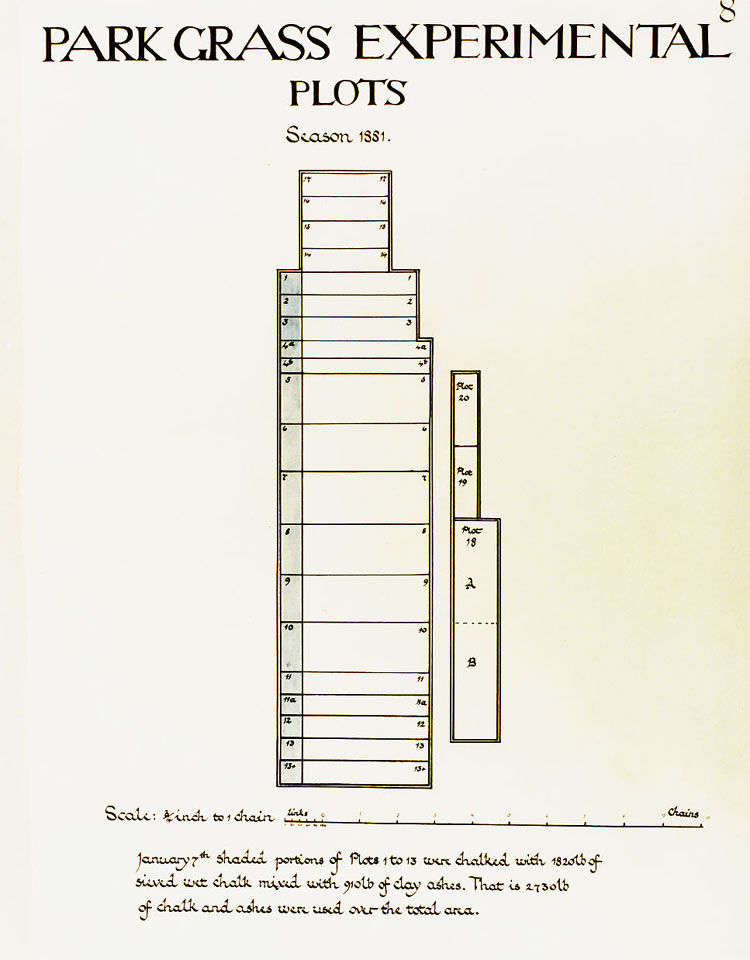 8
PARK GRASS EXPERIMENTAL
PLOTS
Season 1881.
17 17
16 16
15 15
14 14
1 1
2 2
3 3
4a 4a
4b 4b
5 5
Plot
20
6 6
Plot
19
7 7
8 8
Plot
18
9 9
A
10 10
B
11 11
11a 11a
12 12
13 13
13+ 13+
Scale: ¾ inch to 1 chain links Chains
January 7th shaded portions of Plots 1 to 13 were chalked with 1820lb of
sieved wet chalk mixed with 910lb of clay ashes. That is 2730lb
of chalk and ashes were used over the total area.